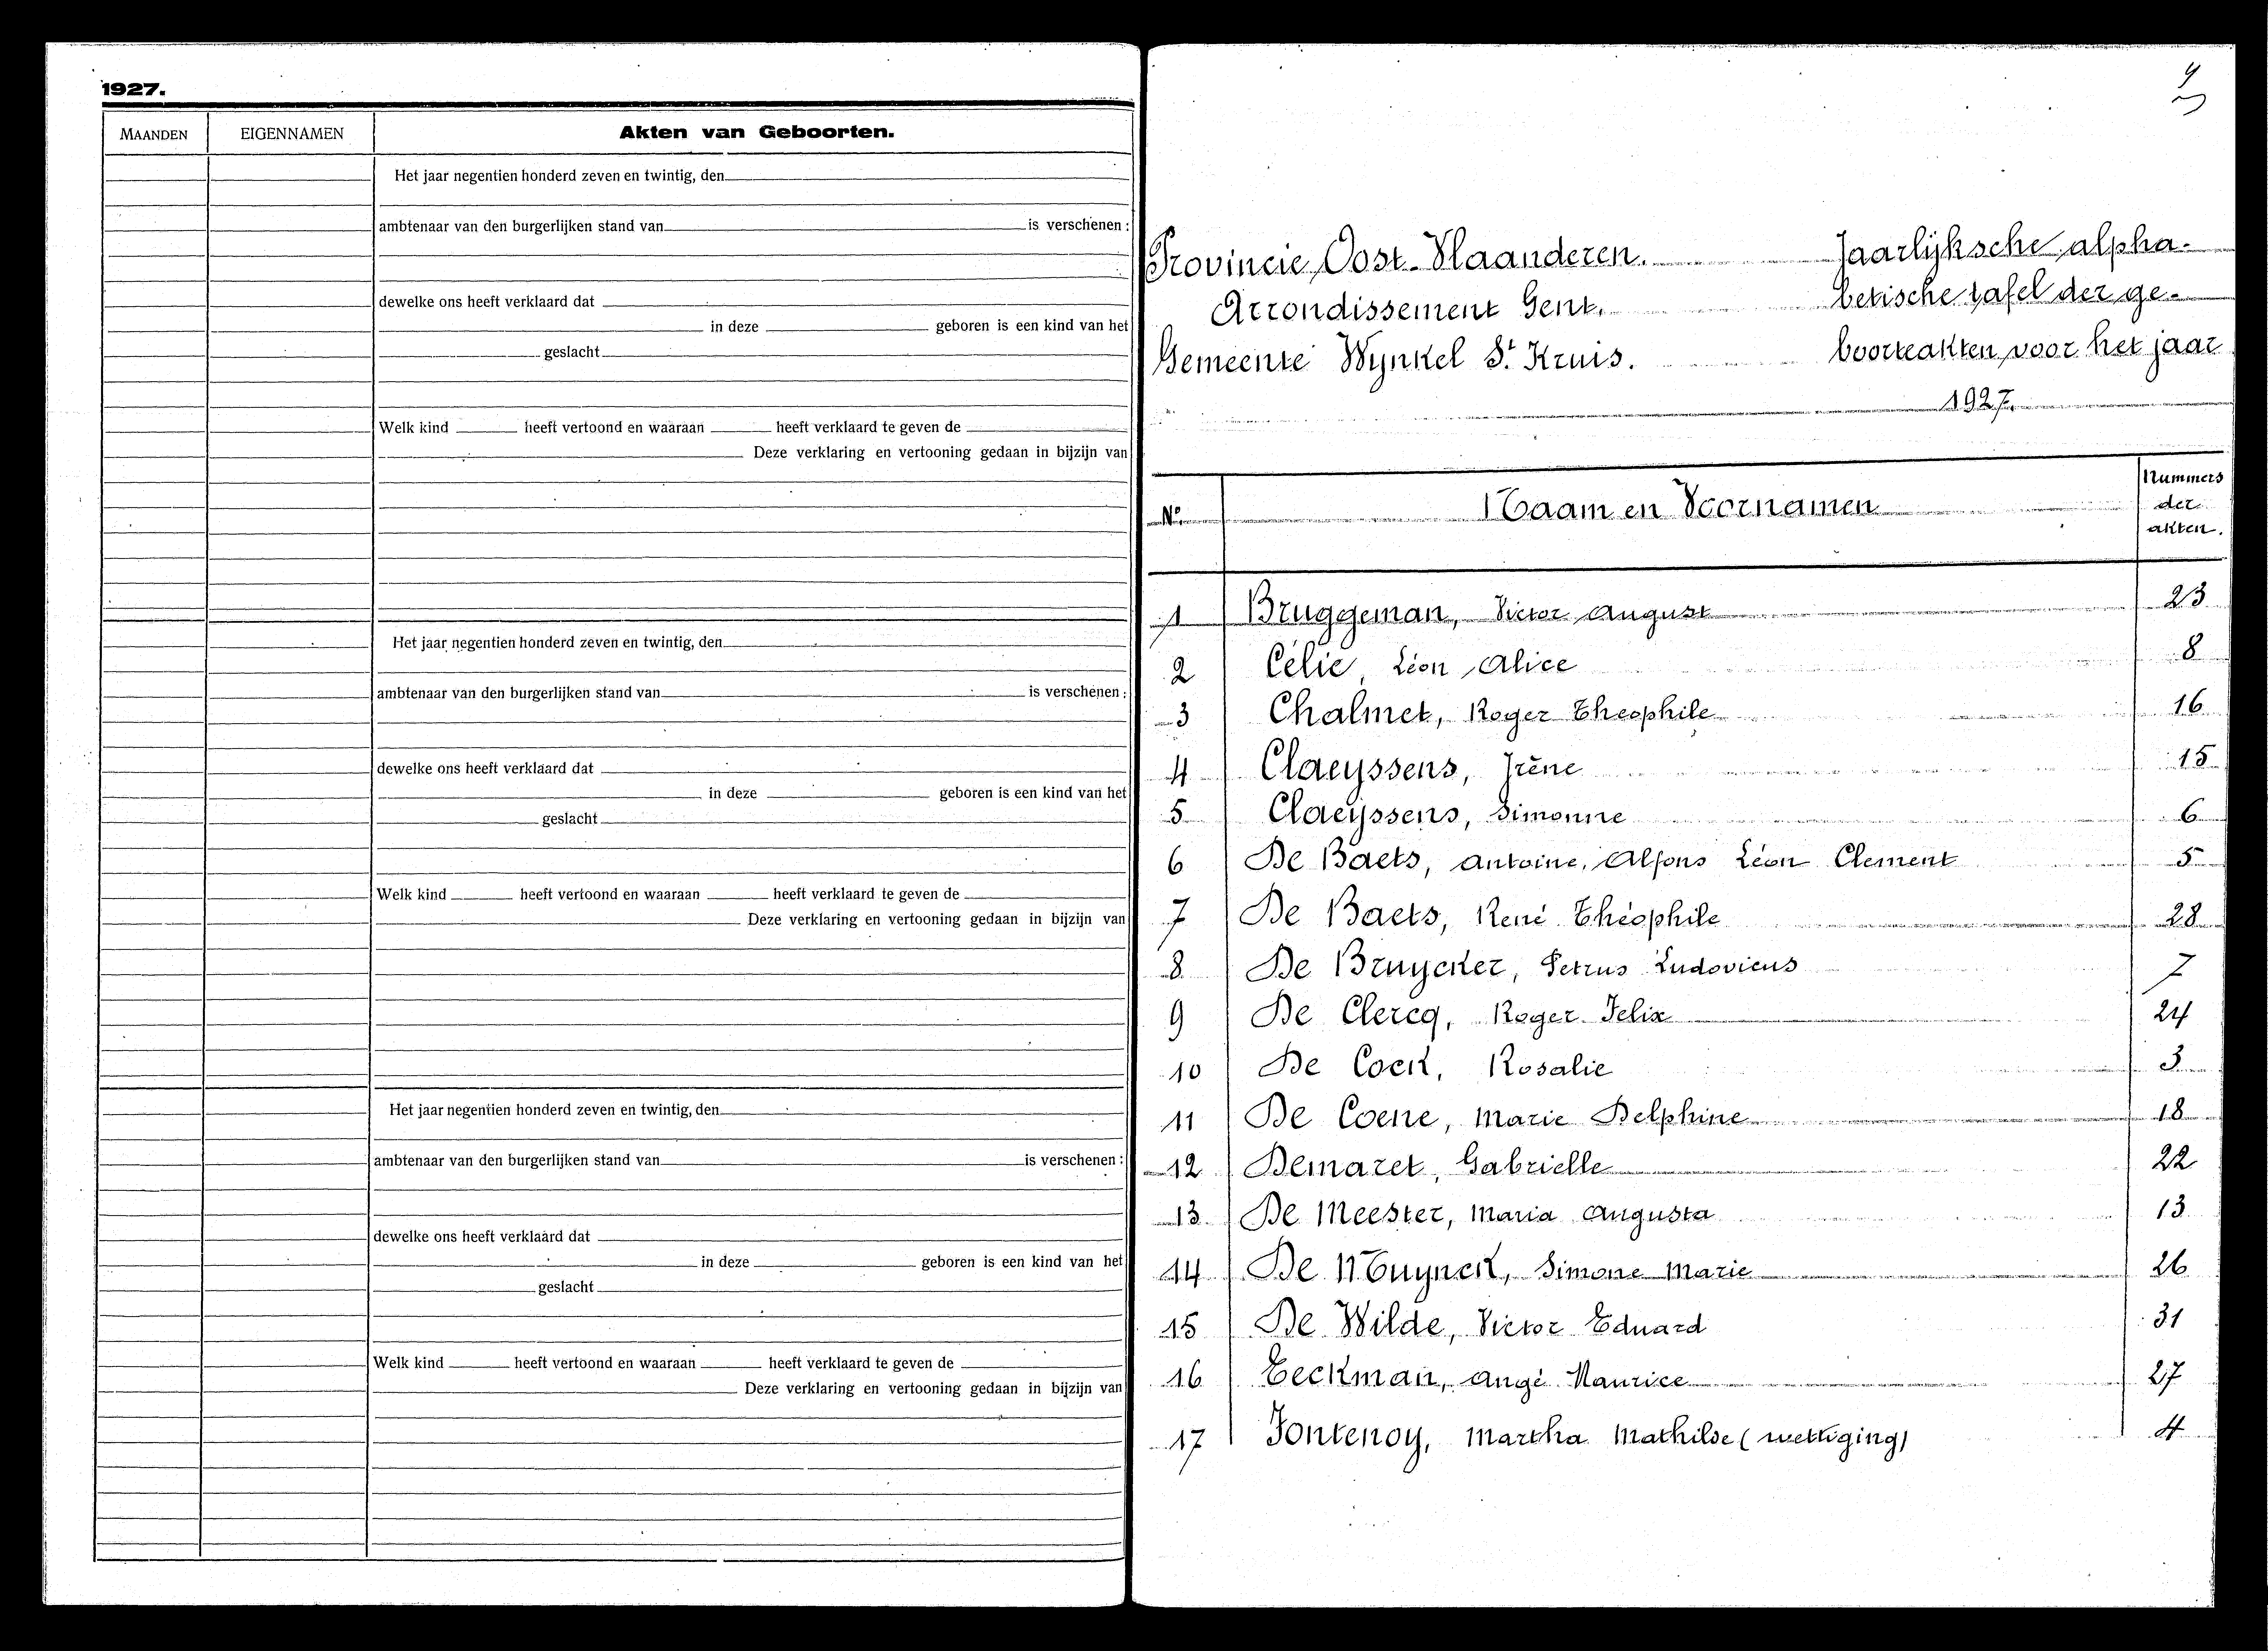 1927.
MAANDEN EIGENNAMEN Akten van Geboorten.
Het jaar negentien honderd zeven en twintig, den
ambtenaar van den burgerlijken stand van is verschenen :
dewelke ons heeft verklaard dat
in deze geboren is een kind van het
geslacht
Welk kind heeft vertoond en waaraan heeft verklaard te geven de
Deze verklaring en vertooning gedaan in bijzijn van
Het jaar negentien honderd zeven en twintig, den
ambtenaar van den burgerlijken stand van is verschenen :
dewelke ons heeft verklaard dat
in deze geboren is een kind van het
geslacht
Welk kind heeft vertoond en waaraan heeft verklaard te geven de
Deze verklaring en vertooning gedaan in bijzijn van
Het jaar negentien honderd zeven en twintig, den
ambtenaar van den burgerlijken stand van is verschenen :
dewelke ons heeft verklaard dat
in deze geboren is een kind van het
geslacht
Welk kind heeft vertoond en waaraan heeft verklaard te geven de
Deze verklaring en vertooning gedaan in bijzijn van
Provincie Oost-Vlaanderen. Jaarlijksche alpha-
Arrondissement Gent. betische tafel der ge-
Gemeente Wynkel St Kruis. boorteakten voor het jaar
1927.
No Naam en Voornamen Nummers der akten.
1 Bruggeman, Victor August 23
2 Célie, Léon Alice 8
3 Chalmet, Roger Theophile 16
4 Claeyssens, Irène 15
5 Claeyssens, Simonne 6
6 De Baets, Antoine, Alfons Léon Clement 5
7 De Baets, René Théophile 28
8 De Bruycker, Petrus Ludovicus 7
9 De Clercq, Roger Felix 24
10 De Cock, Rosalie 3
11 De Coene, Marie Delphine 18
12 Demaret, Gabrielle 22
13 De Meester, Maria Augusta 13
14 De Muynck, Simone Marie 26
15 De Wilde, Victor Eduard 31
16 Eeckman, Angé Maurice 27
17 Fontenoy, Martha Mathilde (wettiging) 4